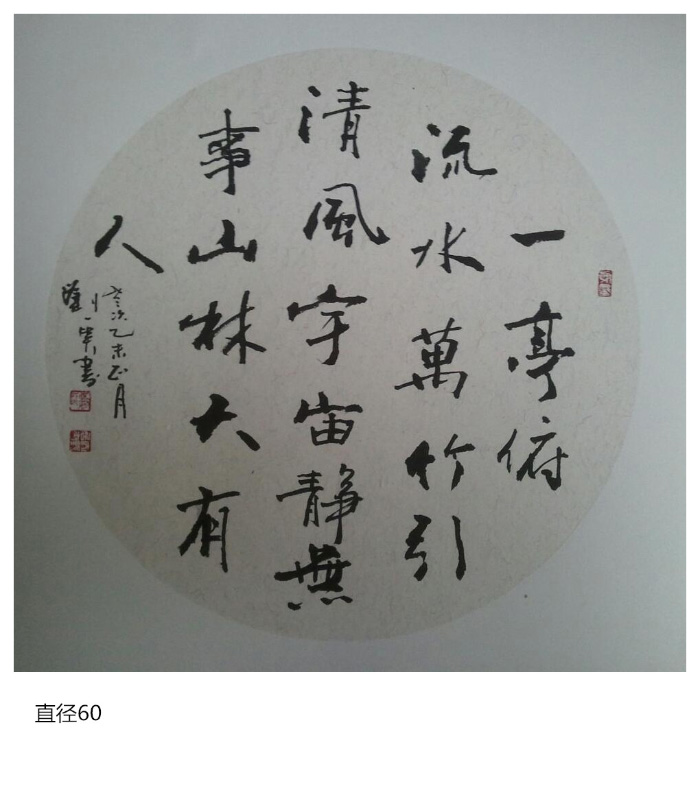 一亭俯
流水萬竹引
清風宇宙靜無
事山林大有
人
乙未正月
書
直径60